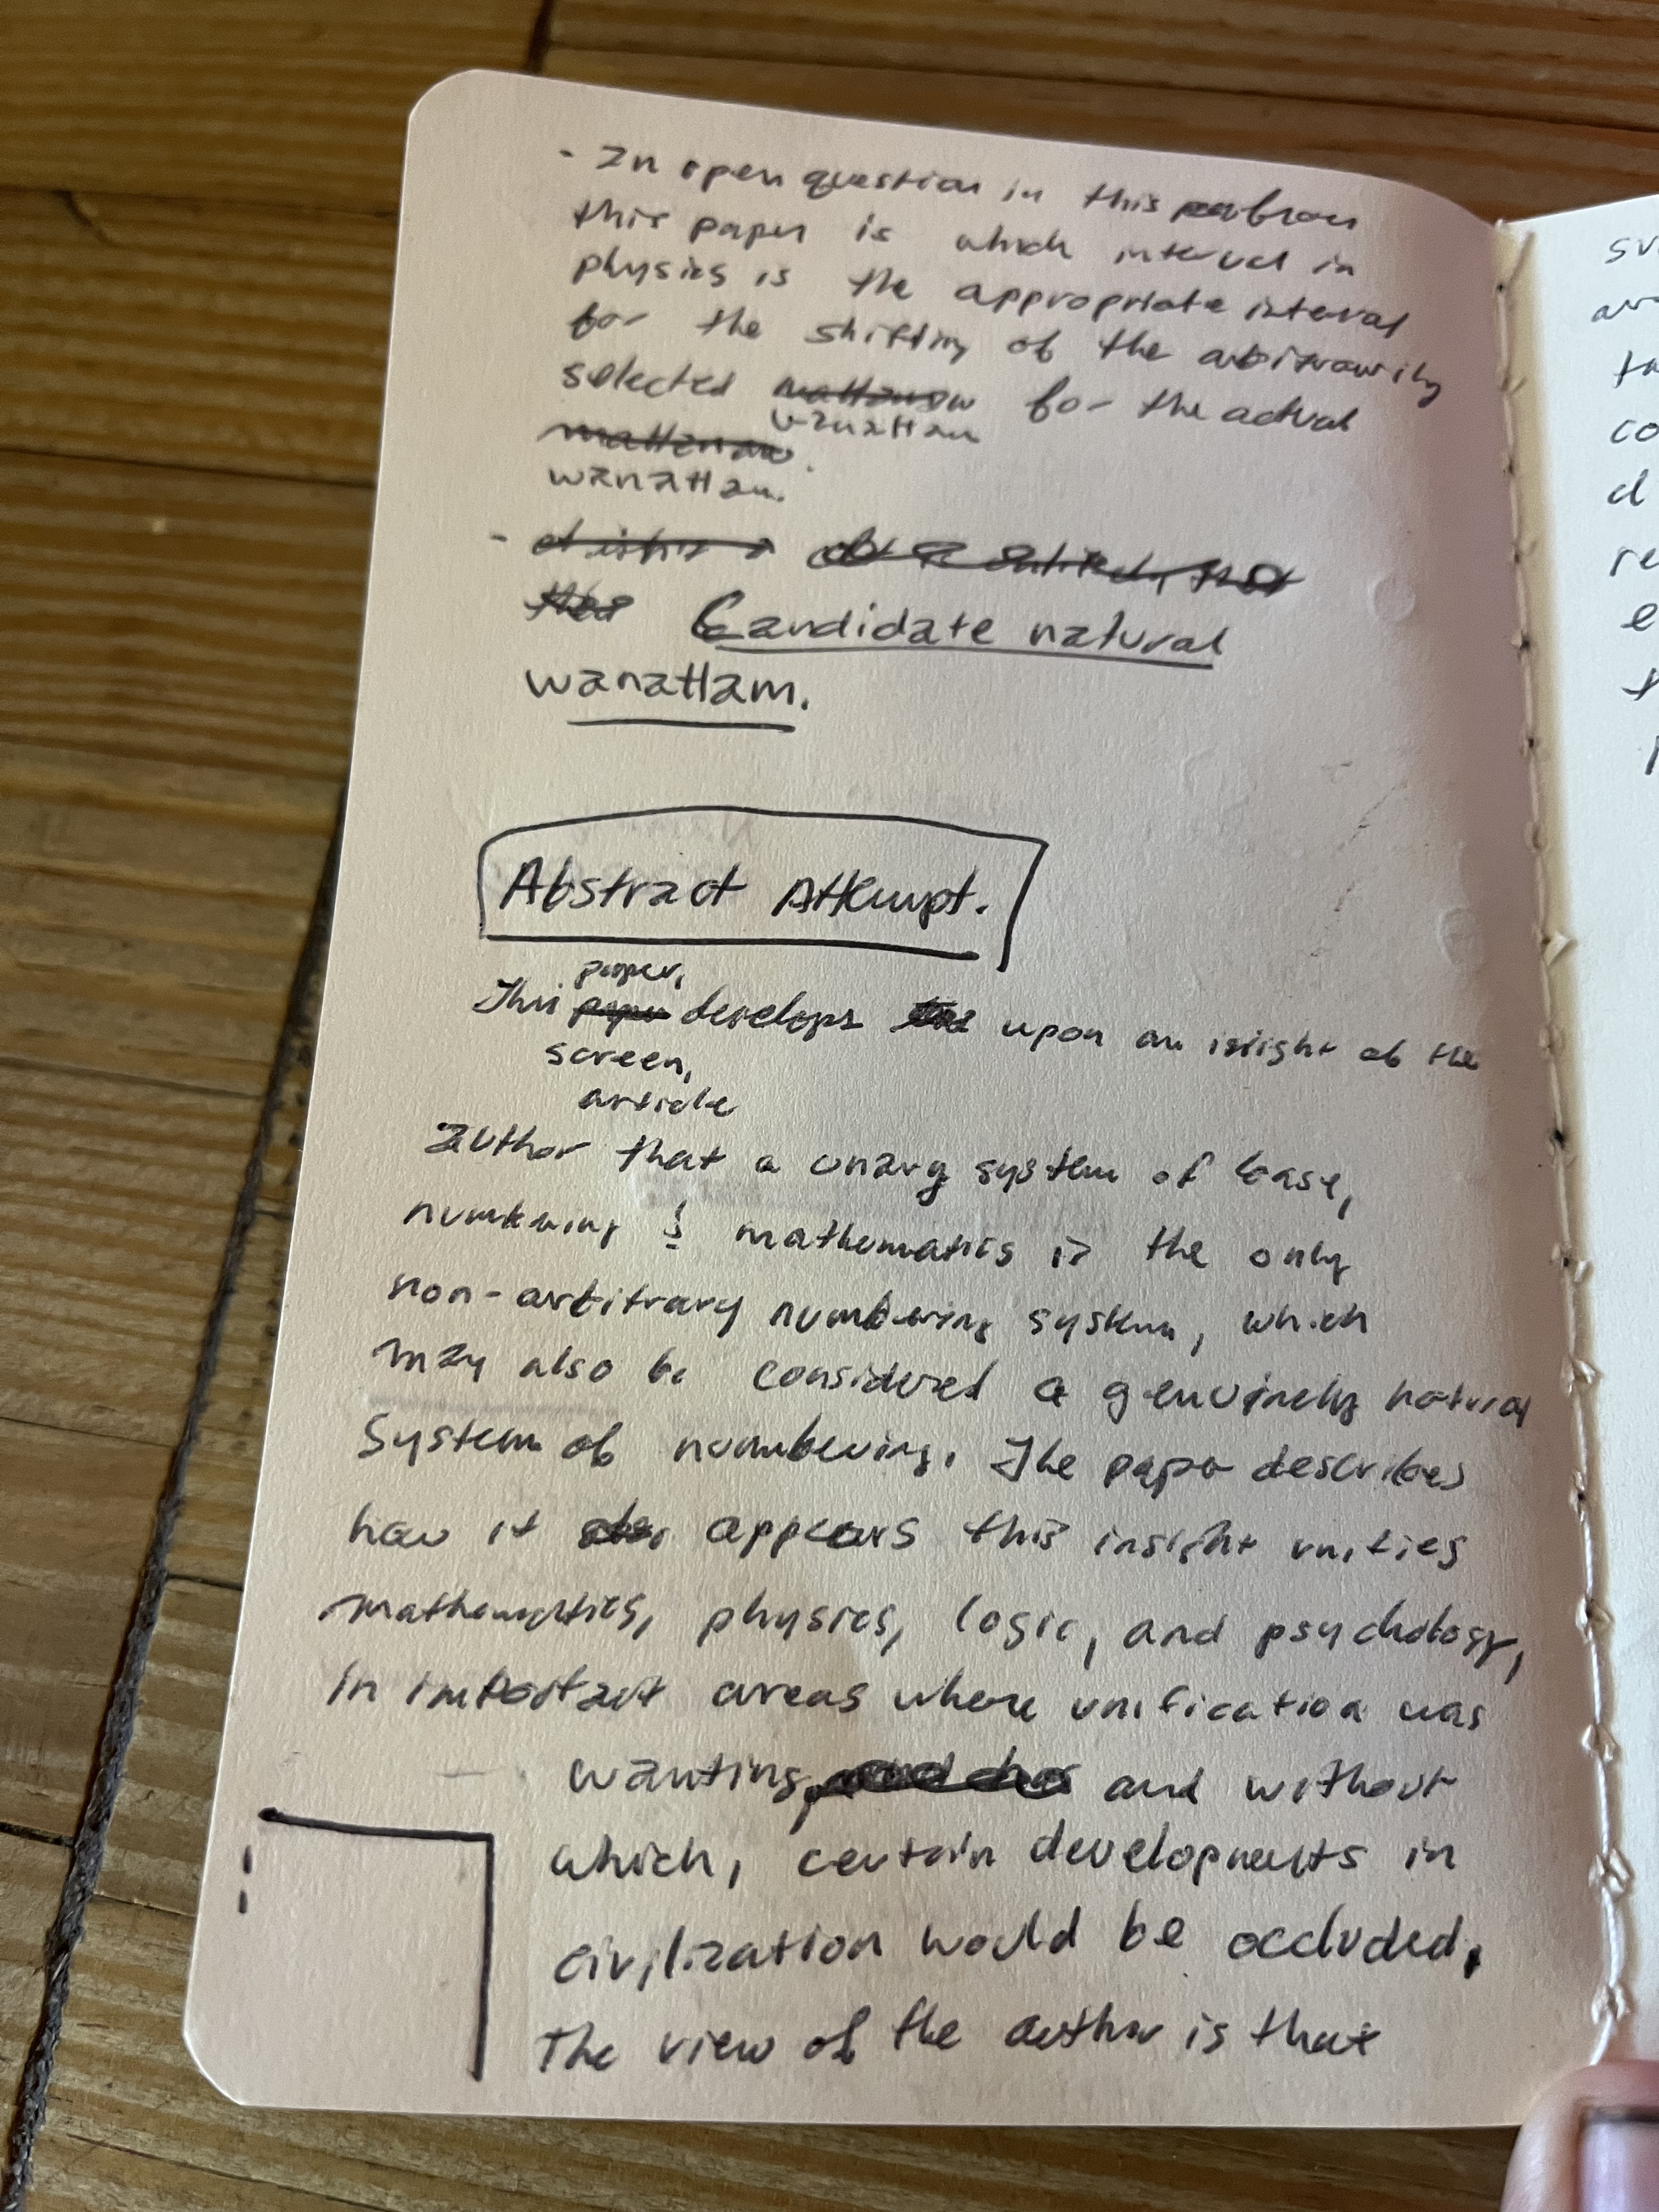 - In open question in this
this paper is which interval in
physics is the appropriate interval
for the shifting of the arbitrarily
selected wanattam for the actual
wanattam.
- Candidate natural
wanattam.
Abstract Attempt.
paper,
This develops upon an insight of the
screen,
article
author that a unary system of base,
numbering & mathematics is the only
non-arbitrary numbering system, which
may also be considered a genuinely natural
System of numbering. The paper describes
how it appears this insight unifies
mathematics, physics, logic, and psychology,
in important areas where unification was
wanting, and without
which, certain developments in
civilization would be occluded.
The view of the author is that
su
co
d
re
e